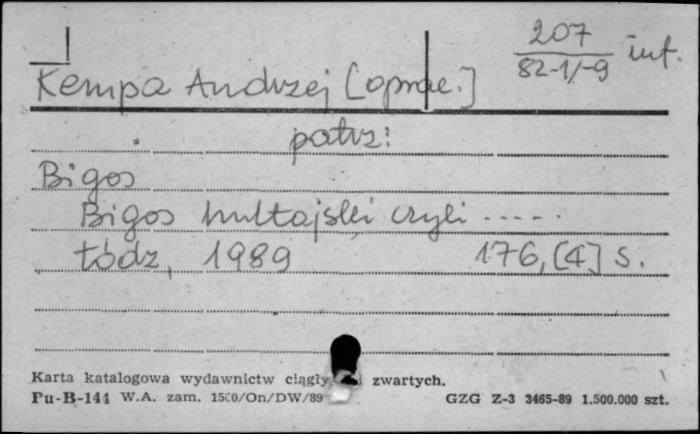 207
82-1/-9 inf.
Kempa Andrzej [oprac.]
patrz:
Bigos
Bigos hultajski czyli .....
Łódz, 1989 176, [4] s.
Karta katalogowa wydawnictw ciągły zwartych.
Pu-B-144 W.A. zam. 1500/On/DW/89 GZG Z-3 3465-89 1.500.000 szt.